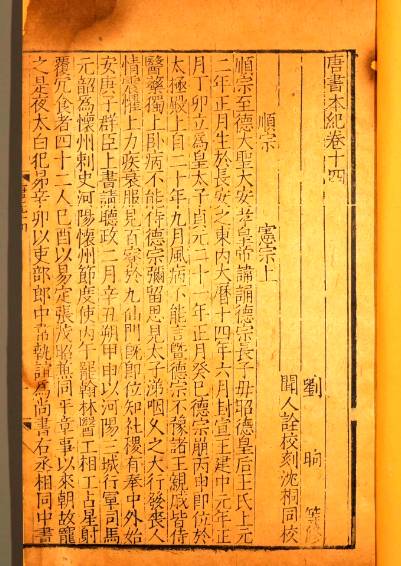 唐書本紀卷十四
劉昫修
聞人詮校刻沈桐同校
順宗 憲宗上
順宗至德大聖大安孝皇帝諱誦德宗長子母昭德皇后王氏上元
二年正月生於長安之東內大曆十四年六月封宣王建中元年正
月丁卯立為皇太子貞元二十一年正月癸巳德宗崩丙申即位於
太極殿上自二十年九月風病不能言暨德宗不豫諸王親戚皆侍
醫藥獨上卧病不能侍德宗彌留思見太子涕咽久之大行發喪人
情震懼上力疾衰服見百寮於九仙門既即位知社稷有奉中外始
安庚子群臣上書請聽政二月辛丑朔甲申以河陽三城行軍司馬
元韶為懷州刺史河陽懷州節度使丙午罷翰林醫工相工占星射
覆冗食者四十二人己酉以易定張茂昭兼同平章事以來朝故寵
之是夜太白犯昴辛卯以吏部郎中韋執誼為尚書右丞相同中書